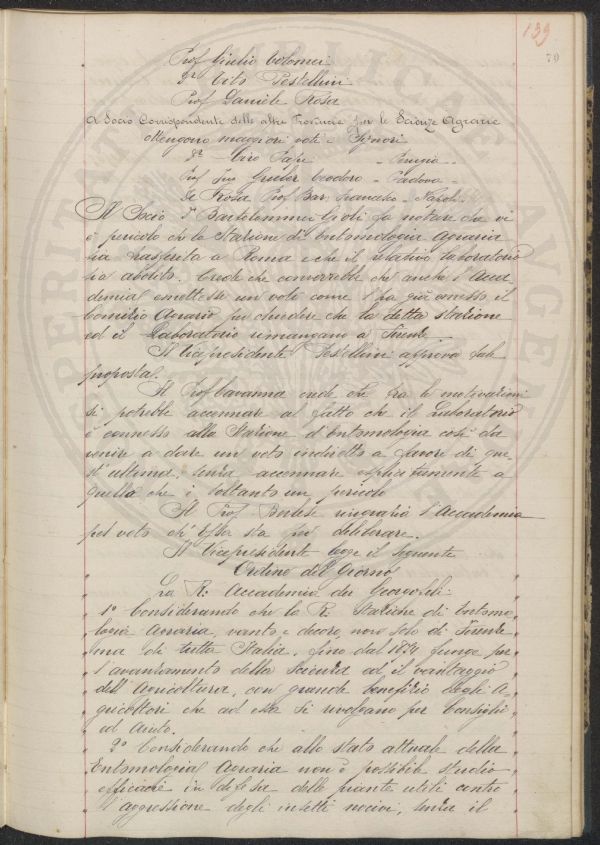 139
70
Prof. Giulio Colomei
Dr Vito Pestellini
Prof Daniele Rosa
A Socio Corrispondente delle altre Provincie per le Scienze Agrarie
Ottengono maggiori voti i Signori
Dr Papi - Perugia -
Prof Ing Teodoro - Padova -
De Rosa Prof Bar Francesco - Napoli -
Il Socio Dr Bartolommei Gioli fa notare che vi
è pericolo che la Stazione di Entomologia Agraria
sia trasferita a Roma e che il relativo laboratorio
sia abolito. Crede che converrebbe che anche l'Acca
demia emettesse un voto come l'ha già emesso il
Comizio Agrario per chiedere che la detta stazione
ed il Laboratorio rimangano a Firenze
Il Vicepresidente Pestellini approva tale
proposta.
Il Prof Cavanna crede che fra le motivazioni
si potrebbe accennare al fatto che il Laboratorio
è connesso alla Stazione d'Entomologia così da
venire a dare un voto indiretto a favore di que
st'ultima, senza accennare esplicitamente a
quella che è soltanto un pericolo
Il Prof. Berlese ringrazia l'Accademia
pel voto ch'Essa sta per deliberare.
Il Vicepresidente legge il seguente
Ordine del Giorno
" La R. Accademia dei Georgofili:
" 1o Considerando che la R. Stazione di Entomo
" logia Agraria, vanto e decoro, non solo di Firenze
" ma di tutta Italia, fino dal 1874 funge per
" l'avanzamento della Scienza ed il vantaggio
" dell'Agricoltura, con grande benefizio degli A
" gricoltori che ad essa si rivolgano per Consigli
" ed Aiuto.
" 2o Considerando che allo stato attuale della
" Entomologia Agraria non è possibile studio
" efficace in difesa delle piante utili contro
" l'aggressione degli insetti nocivi, senza il